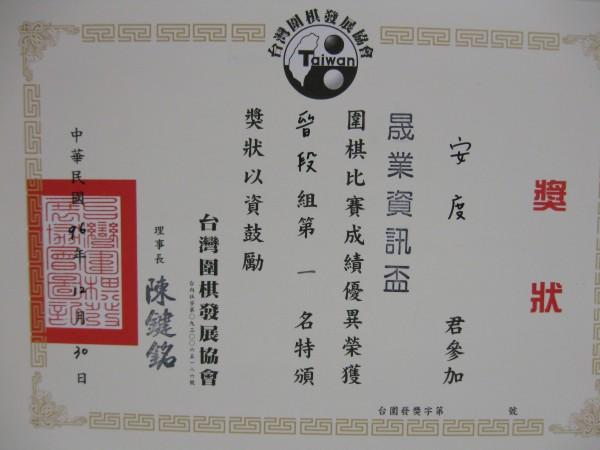 台灣圍棋發展協會
Taiwan
獎狀
安度 君參加
晟業資訊盃
圍棋比賽成績優異榮獲
晉段組第一名特頒
獎狀以資鼓勵
台灣圍棋發展協會
理事長 陳鍵銘
中華民國96年12月30日
台圍發獎字第 號